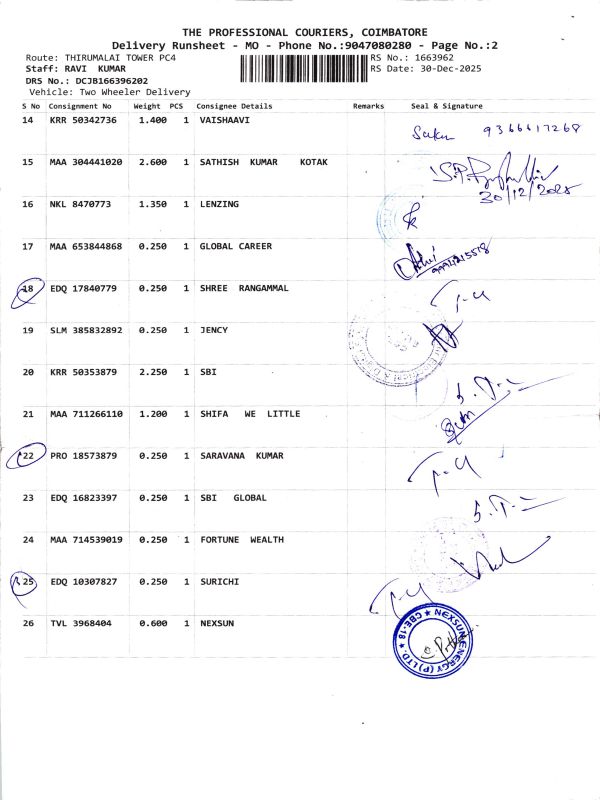 THE PROFESSIONAL COURIERS, COIMBATORE
Delivery Runsheet - MO - Phone No.:9047080280 - Page No.:2
Route: THIRUMALAI TOWER PC4
RS No.: 1663962
Staff: RAVI KUMAR
RS Date: 30-Dec-2025
DRS No.: DCJB166396202
Vehicle: Two Wheeler Delivery
S No Consignment No Weight PCS Consignee Details Remarks Seal & Signature
14 KRR 50342736 1.400 1 VAISHAAVI
9366617268
15 MAA 304441020 2.600 1 SATHISH KUMAR KOTAK
30/12/2025
16 NKL 8470773 1.350 1 LENZING
17 MAA 653844868 0.250 1 GLOBAL CAREER
18 EDQ 17840779 0.250 1 SHREE RANGAMMAL
19 SLM 385832892 0.250 1 JENCY
20 KRR 50353879 2.250 1 SBI
21 MAA 711266110 1.200 1 SHIFA WE LITTLE
22 PRO 18573879 0.250 1 SARAVANA KUMAR
23 EDQ 16823397 0.250 1 SBI GLOBAL
24 MAA 714539019 0.250 1 FORTUNE WEALTH
25 EDQ 10307827 0.250 1 SURICHI
26 TVL 3968404 0.600 1 NEXSUN
NEXSUN ENERGY (P) LTD. ★ CBE-18 ★